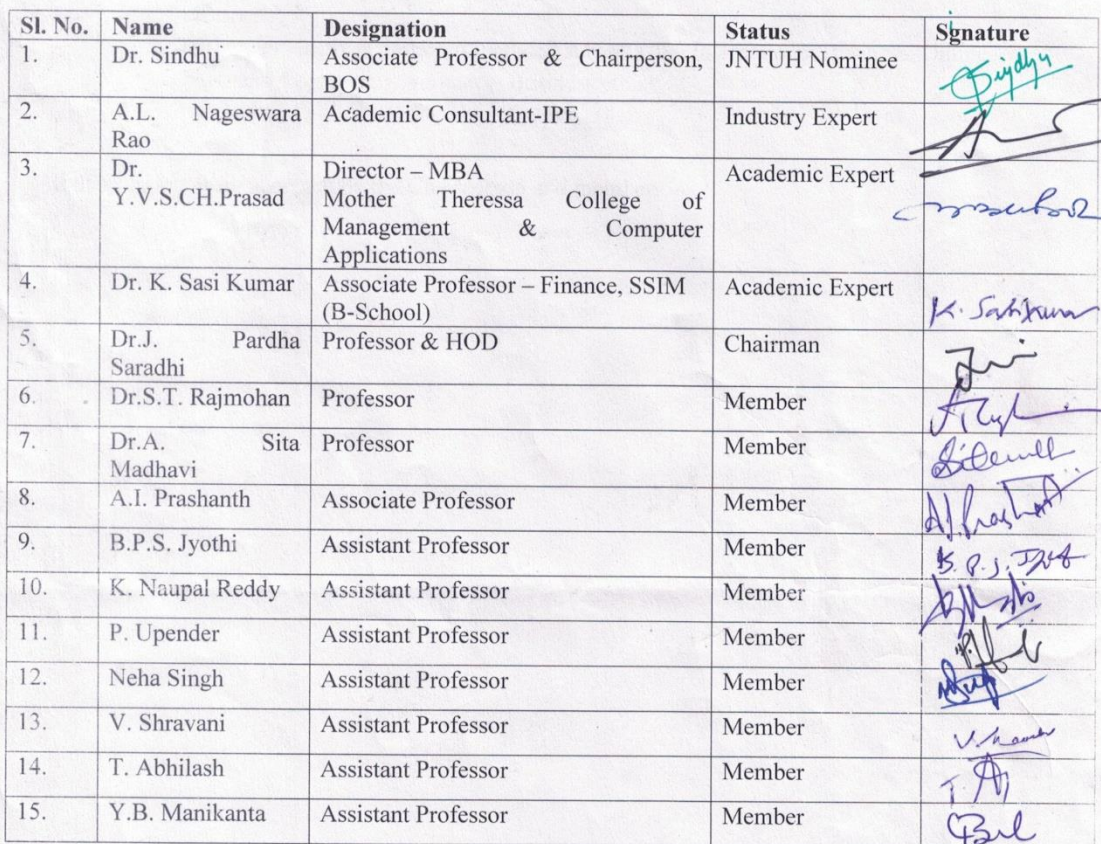 Sl. No. Name Designation Status Signature
1. Dr. Sindhu Associate Professor & Chairperson, JNTUH Nominee Sindhu
BOS
2. A.L. Nageswara Academic Consultant-IPE Industry Expert
Rao
3. Dr. Director – MBA Academic Expert
Y.V.S.CH.Prasad Mother Theressa College of
Management & Computer
Applications
4. Dr. K. Sasi Kumar Associate Professor – Finance, SSIM Academic Expert K. Sasikumar
(B-School)
5. Dr.J. Pardha Professor & HOD Chairman
Saradhi
6. Dr.S.T. Rajmohan Professor Member
7. Dr.A. Sita Professor Member
Madhavi
8. A.I. Prashanth Associate Professor Member
9. B.P.S. Jyothi Assistant Professor Member
10. K. Naupal Reddy Assistant Professor Member
11. P. Upender Assistant Professor Member
12. Neha Singh Assistant Professor Member
13. V. Shravani Assistant Professor Member
14. T. Abhilash Assistant Professor Member
15. Y.B. Manikanta Assistant Professor Member